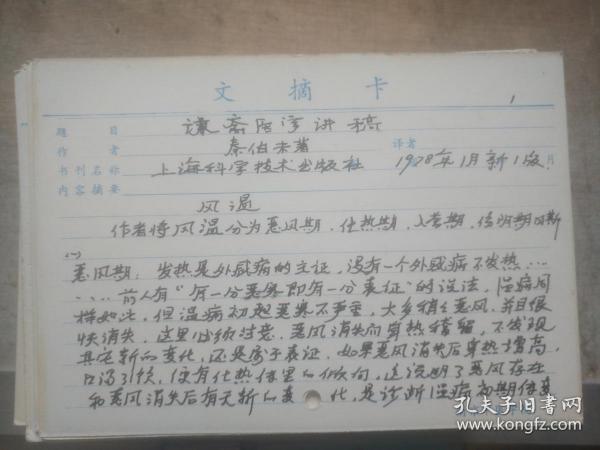 文摘卡
1
题目 谦斋临诊讲稿
作者 秦伯未著 译者
书刊名称 上海科学技术出版社 1978年1月新1版 月
内容摘要
风温
作者将风温分为恶风期，化热期，入营期，伤阴期四
(一)
恶风期：发热是外感病的主证，没有一个外感病不发热……
……前人有“有一分恶寒即有一分表证”的说法，温病同
样如此，但温病初起恶寒不严重，大多稍有恶风，并且很
快消失，这里必须注意，恶风消失而身热稽留，不发现
其它新的变化，还是属于表证，如果恶风消失后身热增高，
口渴引饮，便有化热传里的倾向，这说明了恶风存在
和恶风消失后有无新的变化，是诊断温病初期传变
孔夫子旧书网
www.kongfz.com